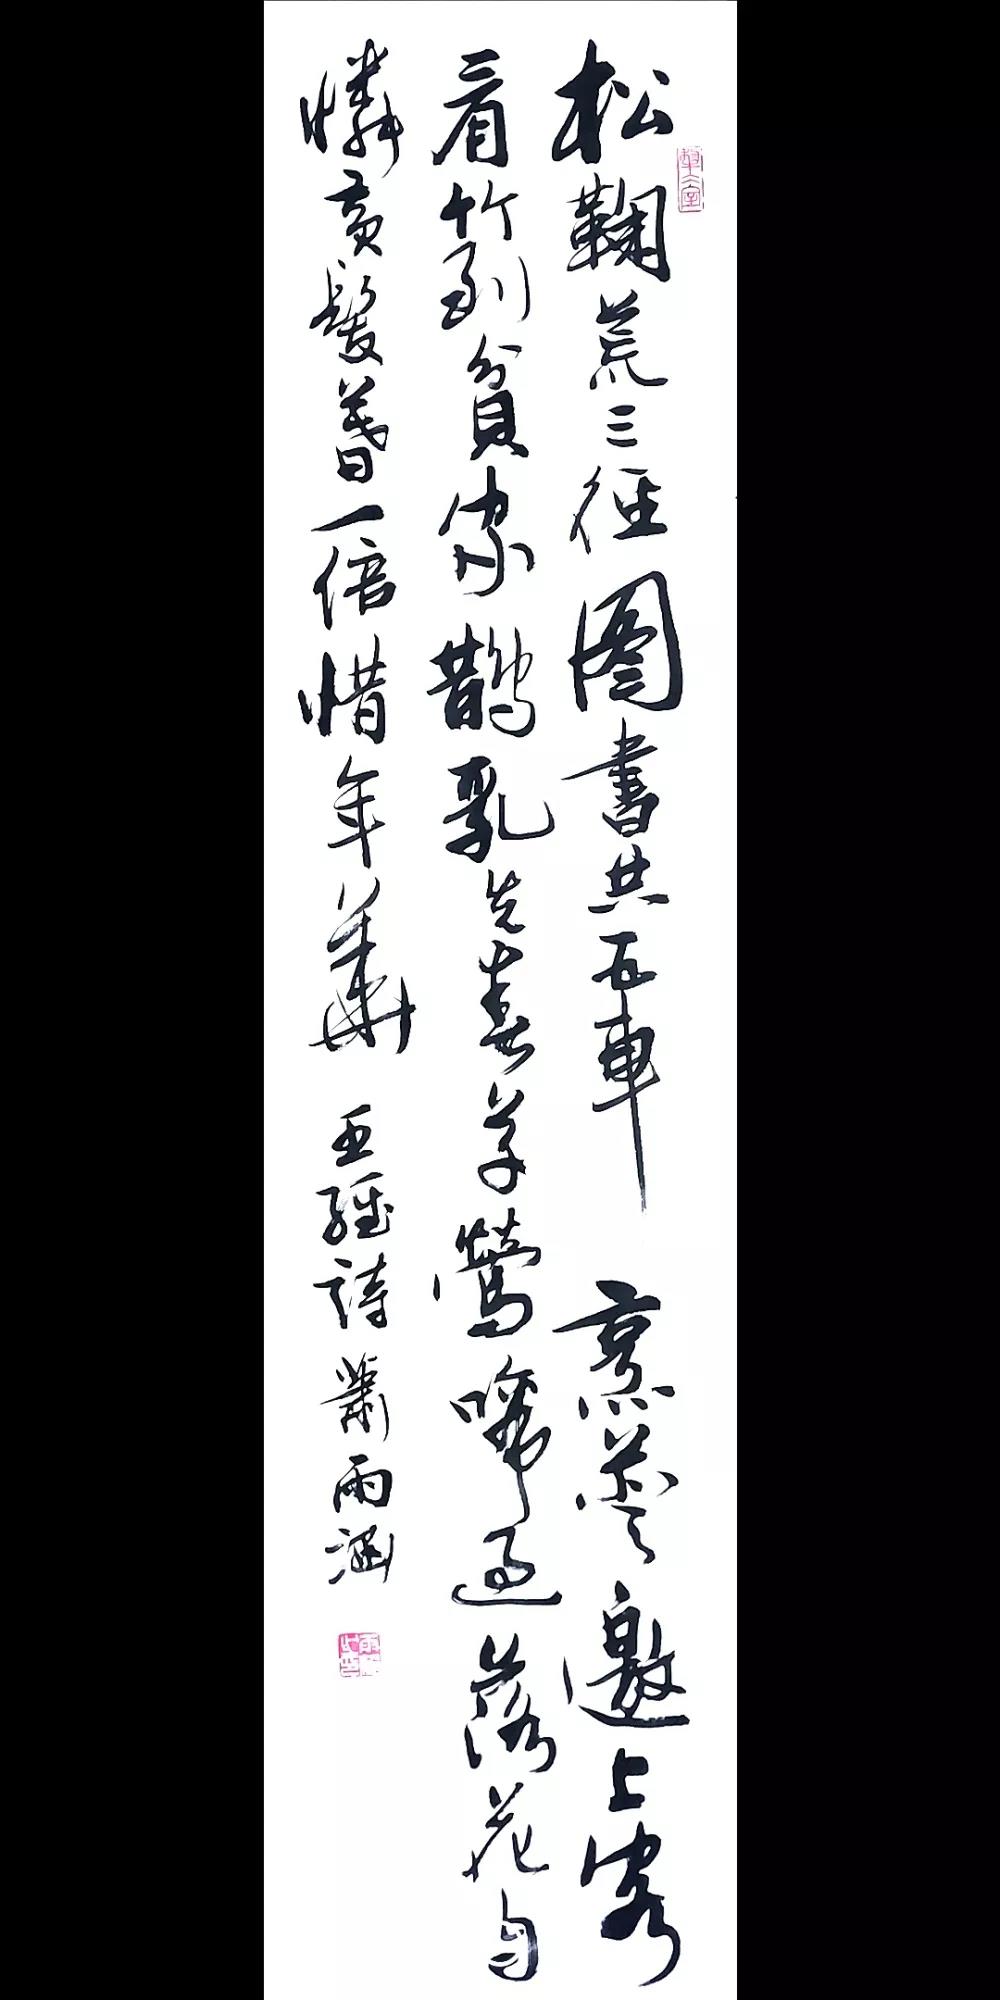 松鞠荒三径图書共五車烹葵邀上客
看竹到貧家鵲乳先春草鶯啼過落花自
憐黄髪暮一倍惜年華 王維詩 蕭雨涵